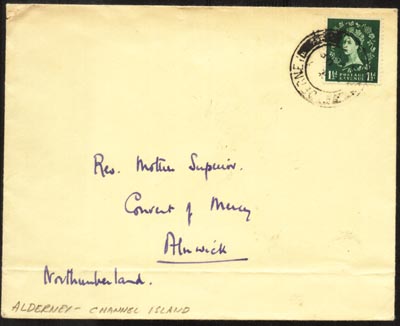 1½d POSTAGE REVENUE 1½d
Rev. Mother Superior.
Convent of Mercy
Alnwick
Northumberland.
ALDERNEY - CHANNEL ISLAND